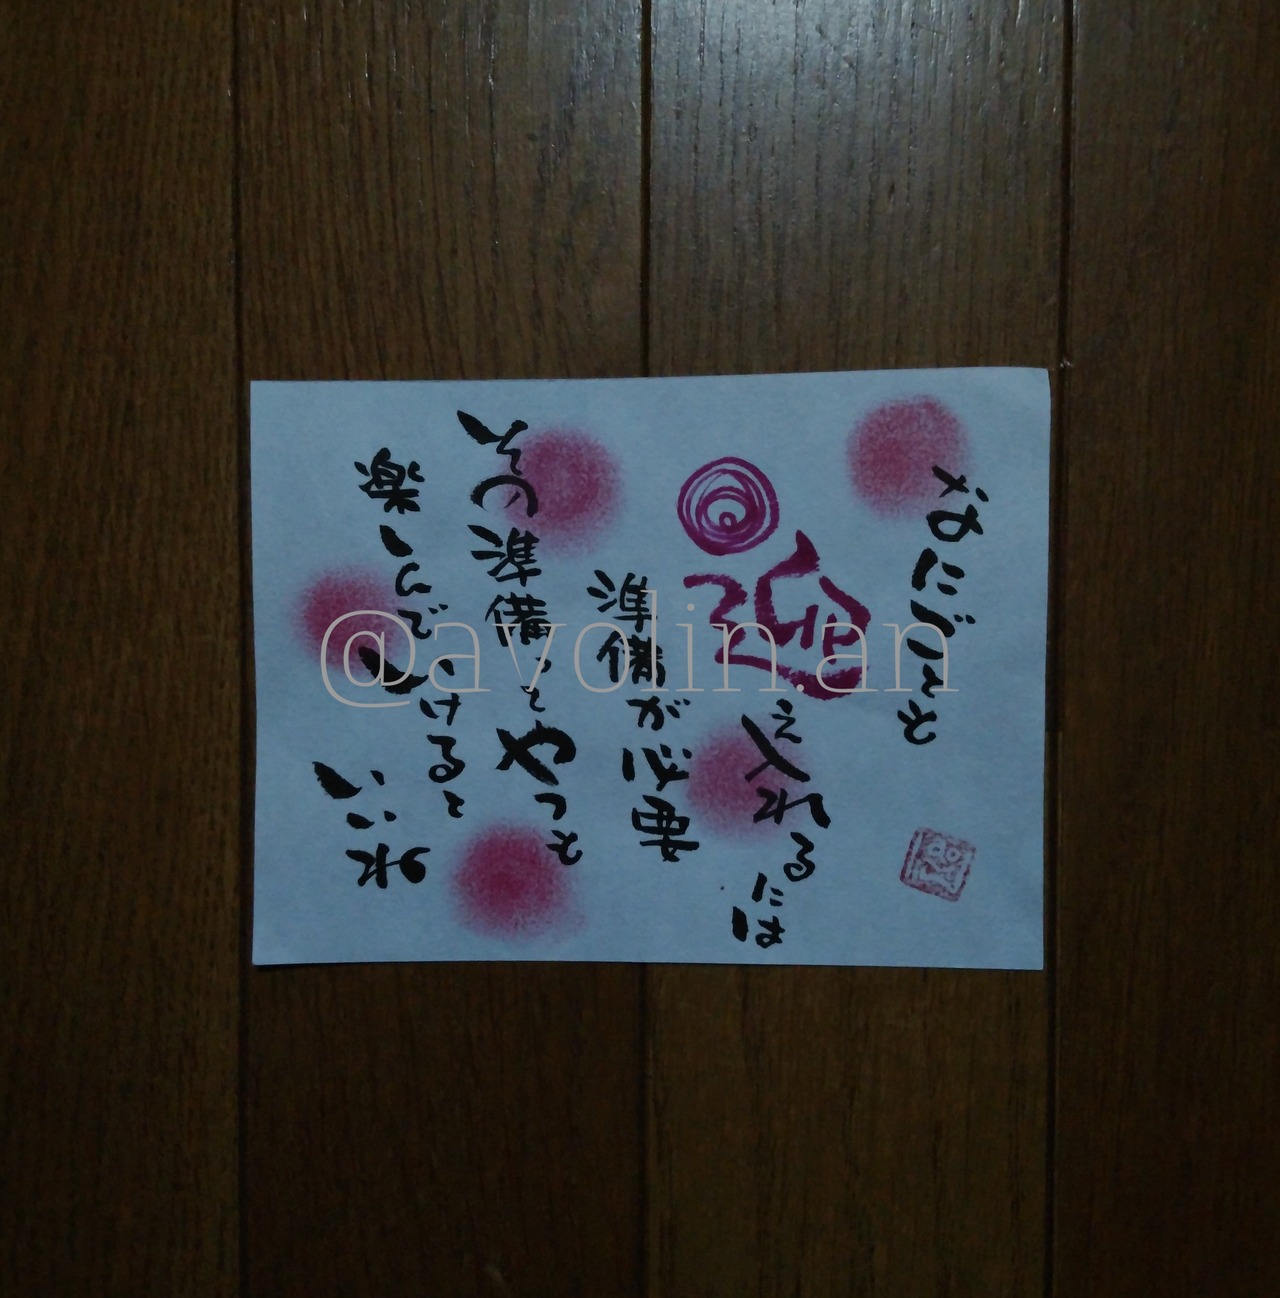 なにごとも
迎え入れるには
準備が必要
その準備っとやっても
楽しんでいけると
いいね
@avolin.an